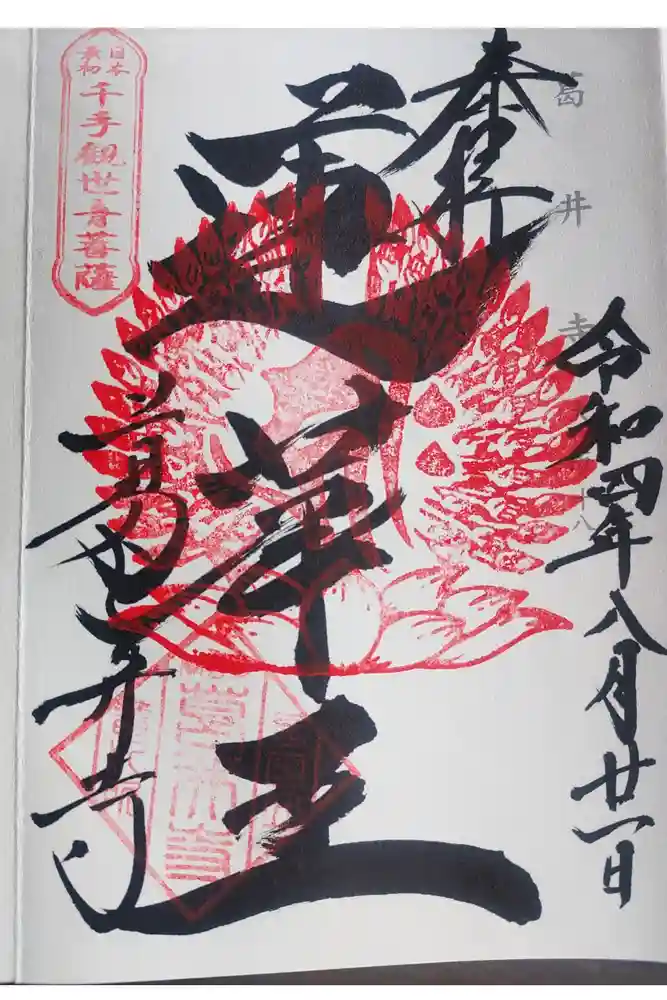 奉拝
葛井寺
十八
令和四年八月廿一日
蓮華王
日本
最初
千手観世音菩薩
葛井寺